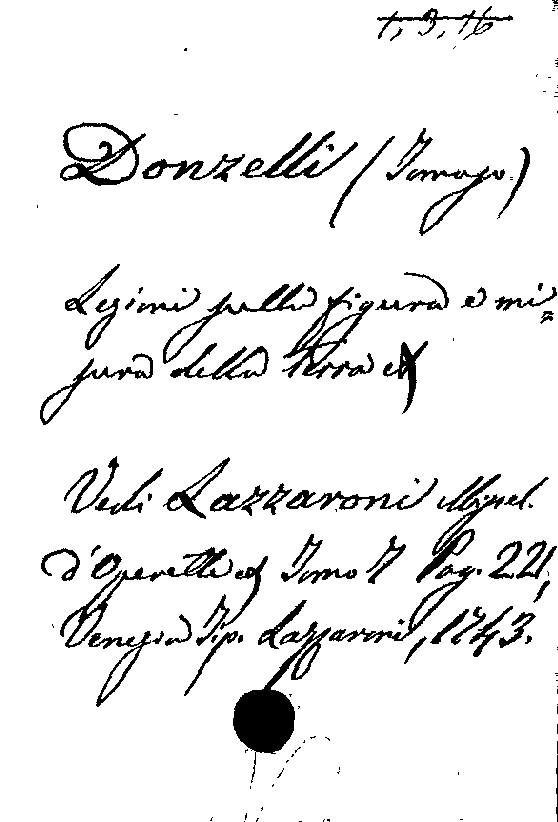 1, 3, 16
Donzelli (Tomaso)
Lezioni sulla figura e mi=
sura della terra
Vedi Lazzaroni Miscel.
d'Operette Tomo 7 Pag. 221,
Venezia Tip. Lazzaroni, 1743.